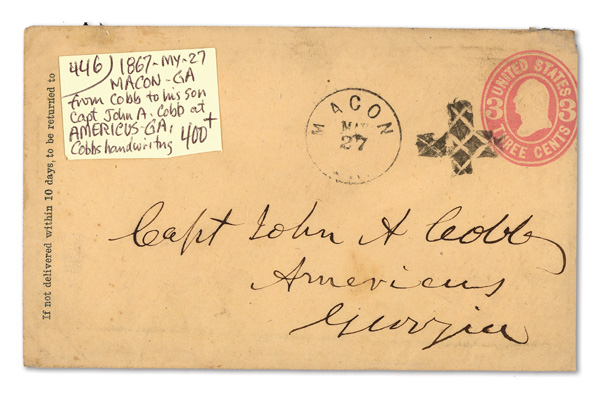 446) 1867-MY-27
MACON-GA
from Cobb to his son
Capt John A. Cobb at
AMERICUS-GA,
Cobbs handwritng 400+
If not delivered within 10 days, to be returned to
MACON
MAY
27
UNITED STATES
3 3
THREE CENTS
Capt John A Cobb
Americus
Georgia